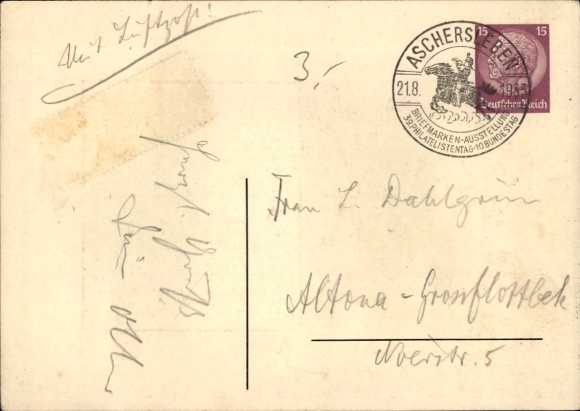 Mit Luftpost!
3,-
ASCHERSLEBEN
21.8.
BRIEFMARKEN-AUSSTELLUNG
39.PHILATELISTENTAG-10.BUNDESTAG
15 15
Deutsches Reich
Frau L. Dahlgrün
Altona-Grossflottbek